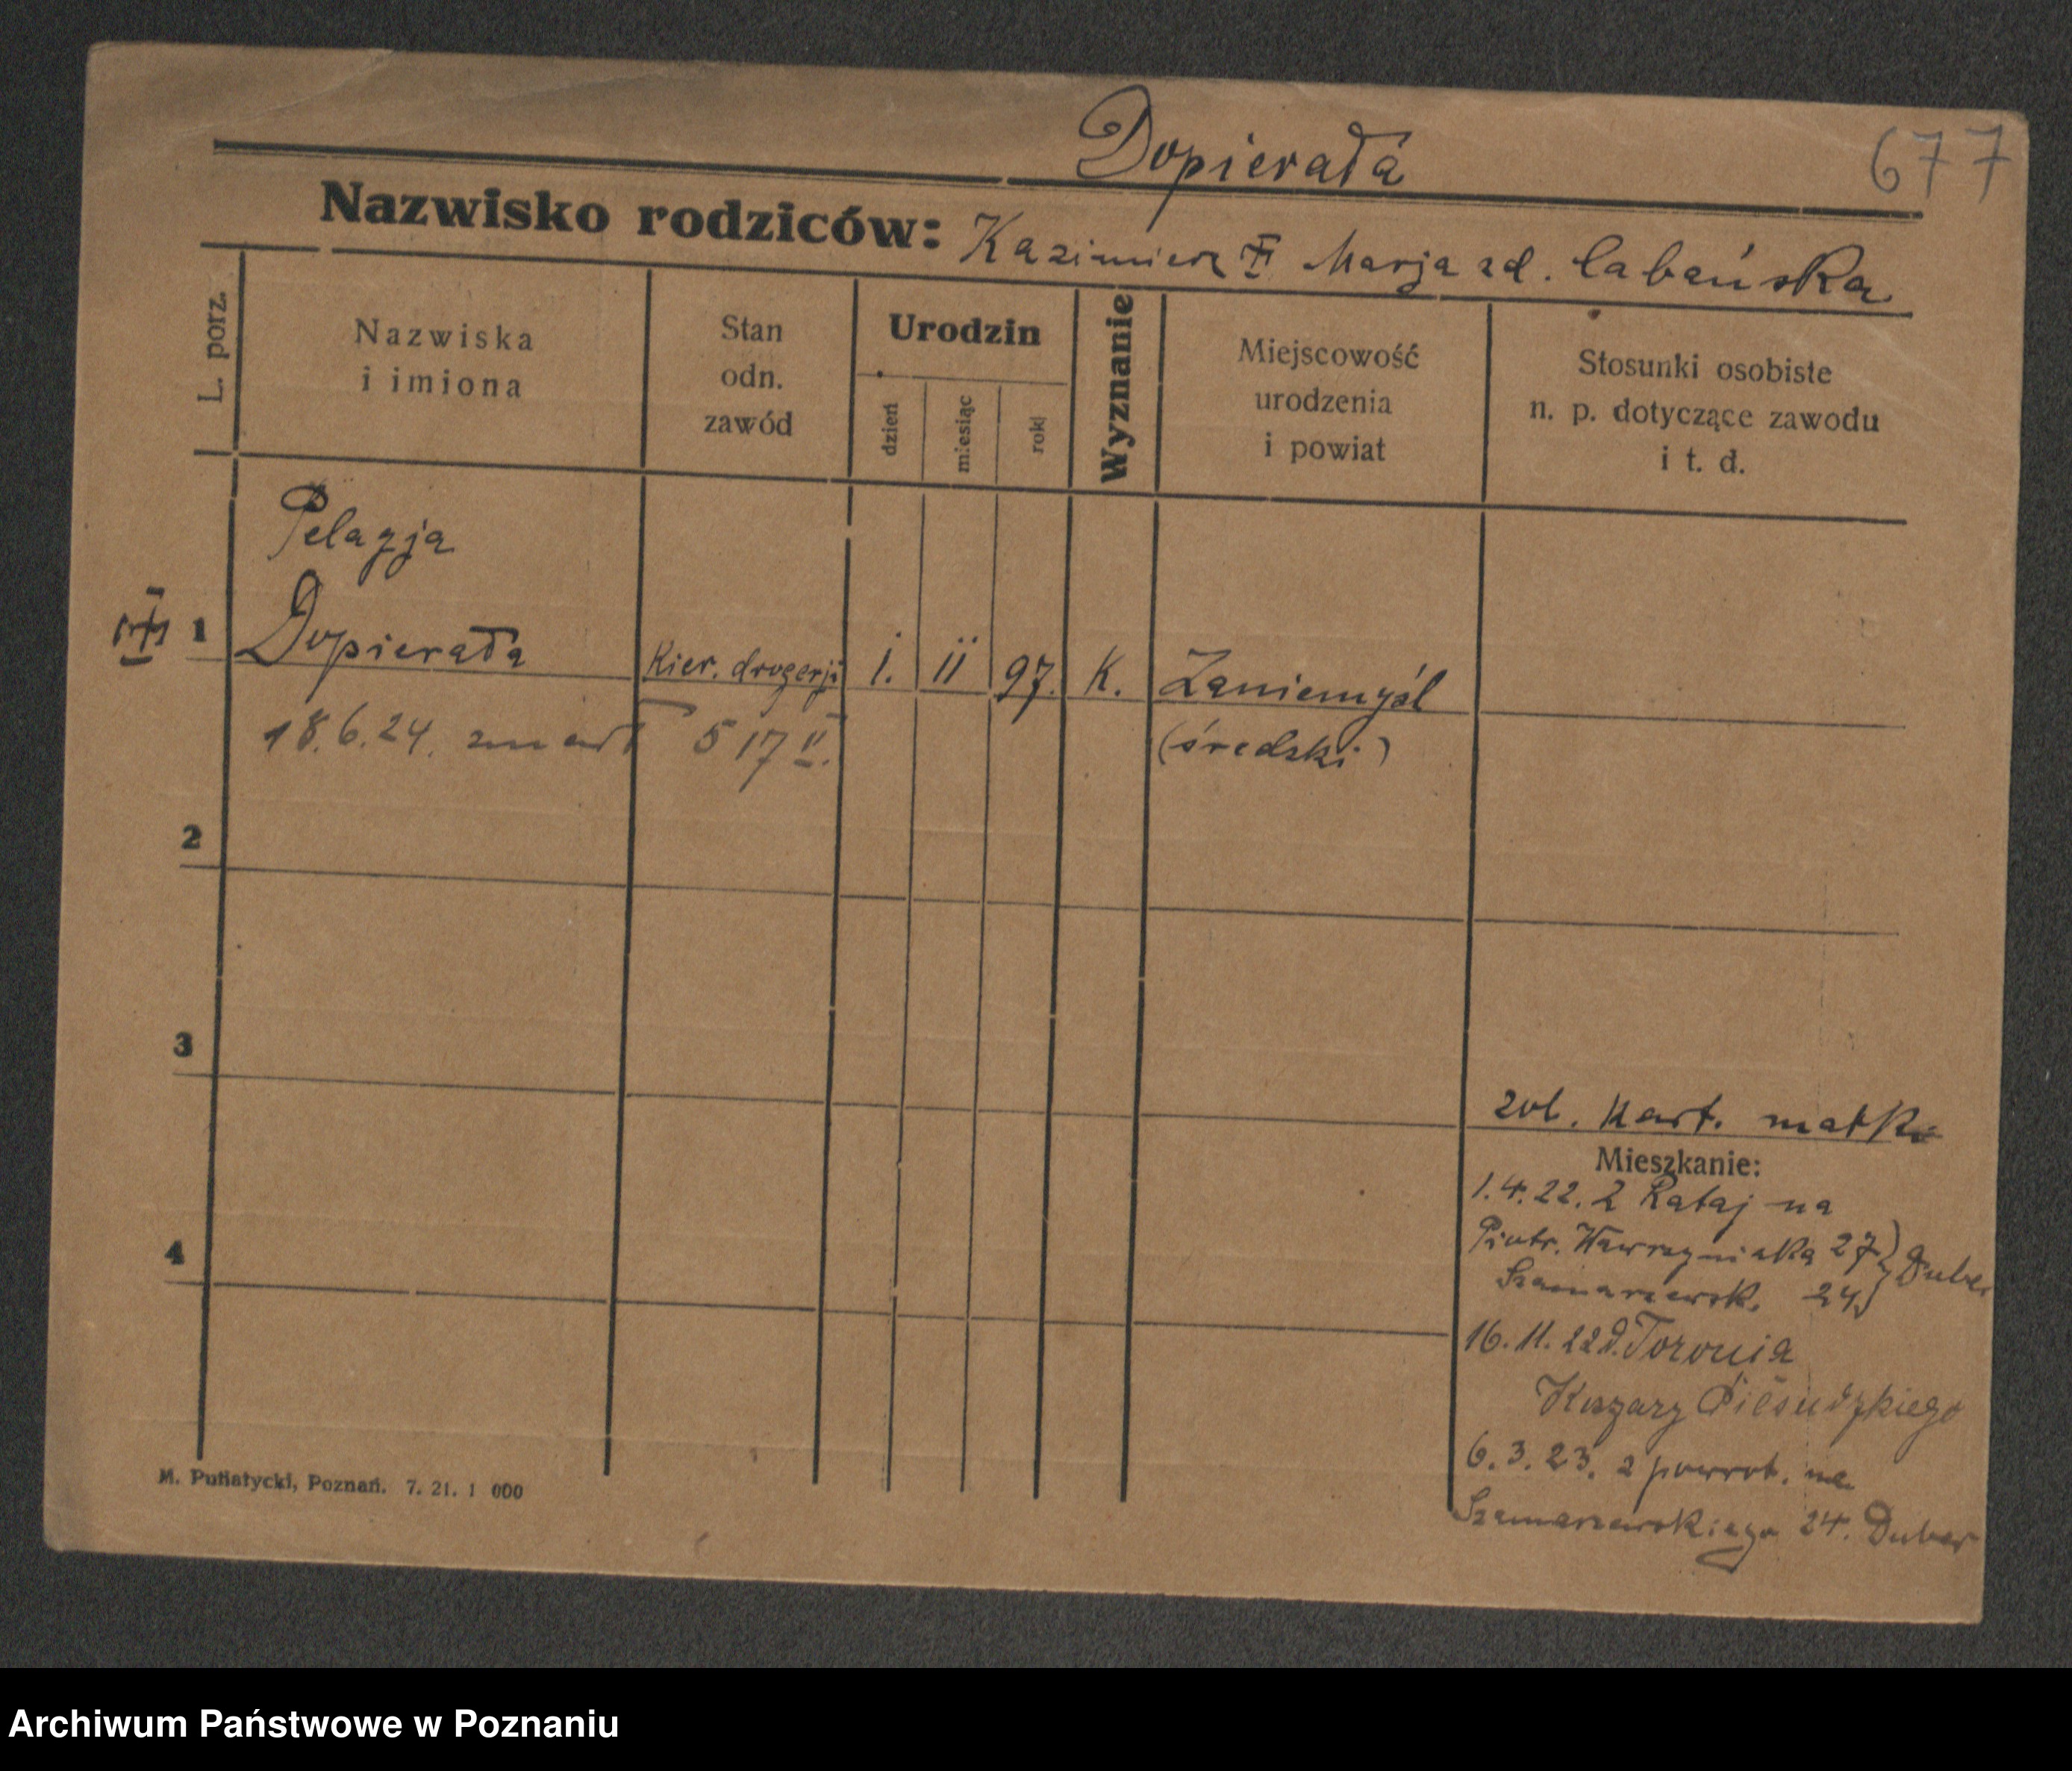 Dopierała
677
Nazwisko rodziców: Kazimierz Marja zd. Labańska
L. porz.
Nazwiska
i imiona
Stan
odn.
zawód
Urodzin
dzień
miesiąc
rok
Wyznanie
Miejscowość
urodzenia
i powiat
Stosunki osobiste
n. p. dotyczące zawodu
i t. d.
Pelagja
1 Dopierała Kier. drogerji 1. 11 97. K. Zaniemyśl
18.6.24. zmarł 517 II. (średzki)
2
3
zob. Kart. matki
Mieszkanie:
1.4.22. z Rataj na
Piotr. Wawrzyniaka 27
4
Szamarzewsk. 24 Duber
16.11.22 d. Torunia
Kazary Piłsudzkiego
6.3.23. z powrot. na
Szamarzewskiego 24. Duber
M. Putiatycki, Poznań. 7. 21. 1 000
Archiwum Państwowe w Poznaniu